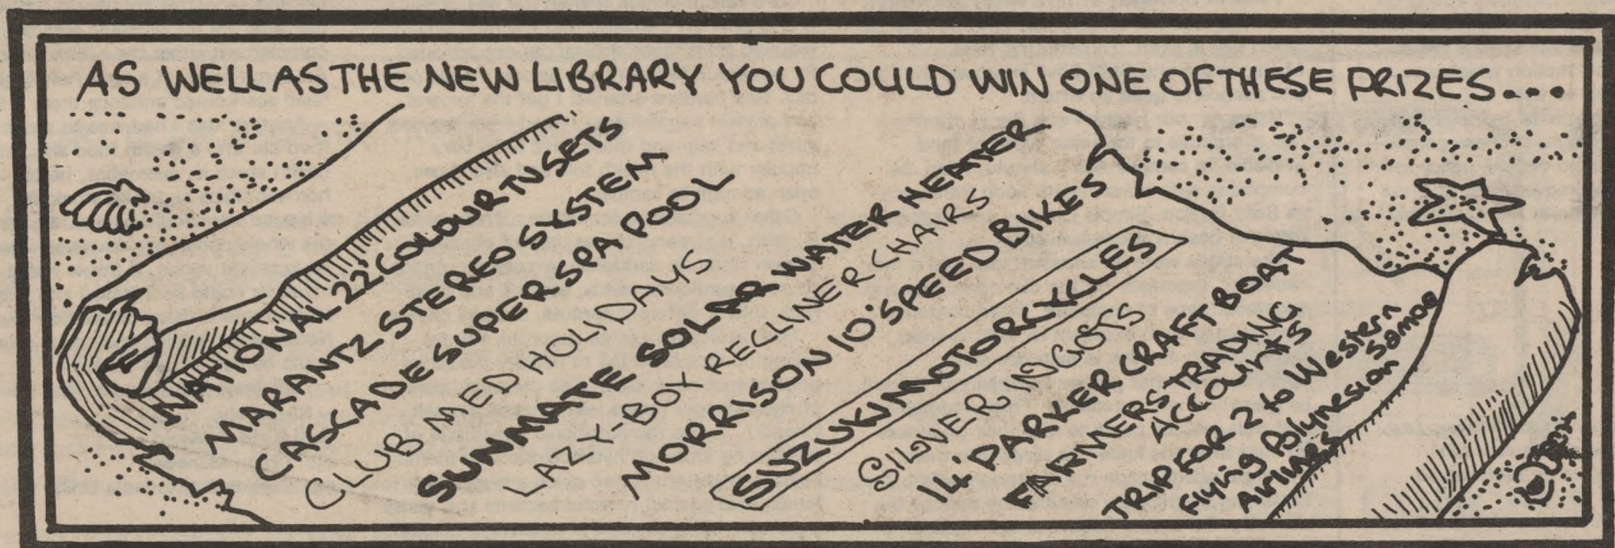 AS WELL AS THE NEW LIBRARY YOU COULD WIN ONE OF THESE PRIZES...
NATIONAL 22 COLOUR TV SETS
MARANTZ STEREO SYSTEM
CASCADE SUPER SPA POOL
CLUB MED HOLIDAYS
SUNMATE SOLAR WATER HEATER
LAZY-BOX RECLINER CHAIRS
MORRISON 10 SPEED BIKES
SUZUKI MOTORCYCLES
SILVER INGOTS
14' PARKER CRAFT BOAT
FARMERS TRADING
ACCOUNTS
TRIP FOR 2 to Western
Samoa
Flying Polynesian
Airlines